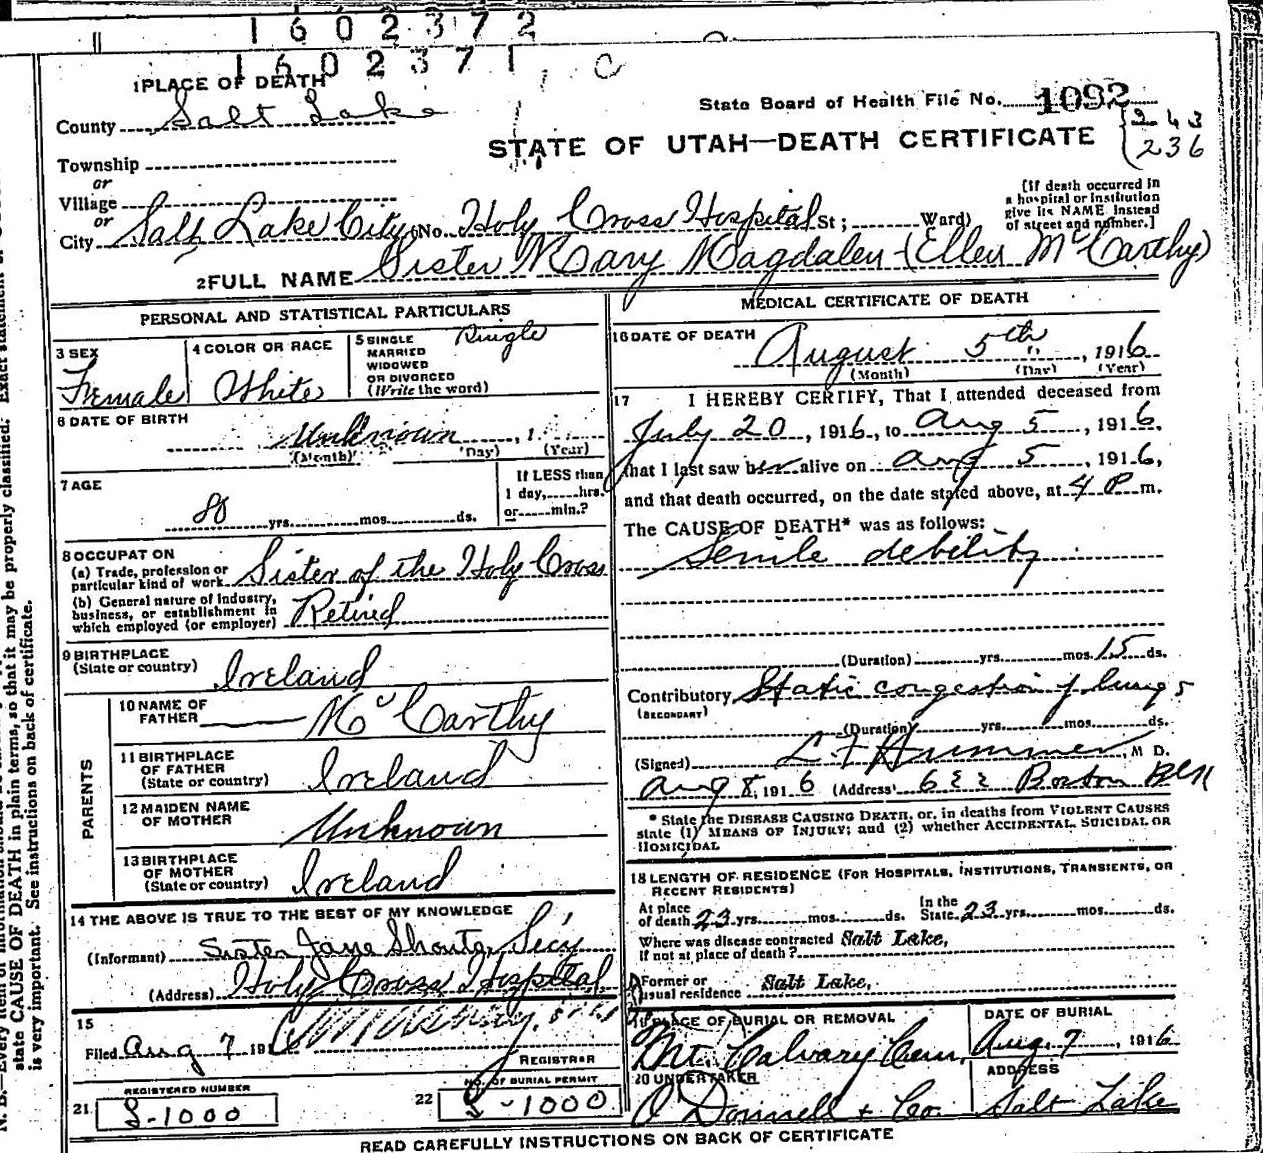 1602372
1602371, C
1 PLACE OF DEATH
State Board of Health File No. 1092
County Salt Lake
243
236
STATE OF UTAH—DEATH CERTIFICATE
Township
or
Village
or
City Salt Lake City (No. Holy Cross Hospital St; Ward)
[If death occurred in
a hospital or institution
give its NAME instead
of street and number.]
2 FULL NAME Sister Mary Magdalen (Ellen McCarthy)
PERSONAL AND STATISTICAL PARTICULARS
3 SEX
Female
4 COLOR OR RACE
White
5 SINGLE
MARRIED
WIDOWED
OR DIVORCED
(Write the word)
Single
6 DATE OF BIRTH
Unknown, 1
(Month) (Day) (Year)
7 AGE
80 yrs. mos. ds.
If LESS than
1 day, hrs.
or min.?
8 OCCUPATION
(a) Trade, profession or
particular kind of work Sister of the Holy Cross
(b) General nature of industry,
business, or establishment in
which employed (or employer) Retired
9 BIRTHPLACE
(State or country) Ireland
PARENTS
10 NAME OF
FATHER McCarthy
11 BIRTHPLACE
OF FATHER
(State or country) Ireland
12 MAIDEN NAME
OF MOTHER Unknown
13 BIRTHPLACE
OF MOTHER
(State or country) Ireland
14 THE ABOVE IS TRUE TO THE BEST OF MY KNOWLEDGE
(Informant) Sister Jane Secy
(Address) Holy Cross Hospital
15
Filed Aug 7 191
REGISTRAR
REGISTERED NUMBER
21 S-1000
NO. OF BURIAL PERMIT
22 S-1000
MEDICAL CERTIFICATE OF DEATH
16 DATE OF DEATH
August 5th, 1916
(Month) (Day) (Year)
17 I HEREBY CERTIFY, That I attended deceased from
July 20, 1916, to Aug 5, 1916,
that I last saw her alive on Aug 5, 1916,
and that death occurred, on the date stated above, at 4 P m.
The CAUSE OF DEATH* was as follows:
Senile debility
(Duration) yrs. mos. 15 ds.
Contributory Static congestion of lungs
(SECONDARY)
(Duration) yrs. mos. ds.
(Signed) L F Hummer, M D.
Aug 8, 1916 (Address) 622 Boston Blk
* State the DISEASE CAUSING DEATH, or, in deaths from VIOLENT CAUSES
state (1) MEANS OF INJURY; and (2) whether ACCIDENTAL, SUICIDAL OR
HOMICIDAL
18 LENGTH OF RESIDENCE (FOR HOSPITALS, INSTITUTIONS, TRANSIENTS, OR
RECENT RESIDENTS)
At place
of death 23 yrs. mos. ds.
In the
State 23 yrs. mos. ds.
Where was disease contracted Salt Lake,
If not at place of death?
Former or
usual residence Salt Lake,
19 PLACE OF BURIAL OR REMOVAL
Mt. Calvary Cem.
DATE OF BURIAL
Aug. 7, 1916
20 UNDERTAKER
O'Donnell & Co.
ADDRESS
Salt Lake
READ CAREFULLY INSTRUCTIONS ON BACK OF CERTIFICATE
state CAUSE OF DEATH in plain terms, so that it may be properly classified. Exact statement of
is very important. See instructions on back of certificate.